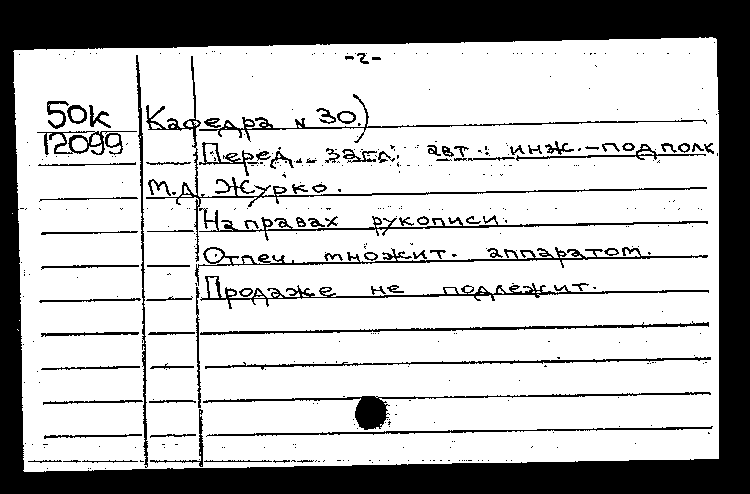 -2-
50к
12099
Кафедра № 30.)
Перед. загл; авт.: инж.-подполк
М.Д. Журко.
На правах рукописи.
Отпеч. множит. аппаратом.
Продаже не подлежит.